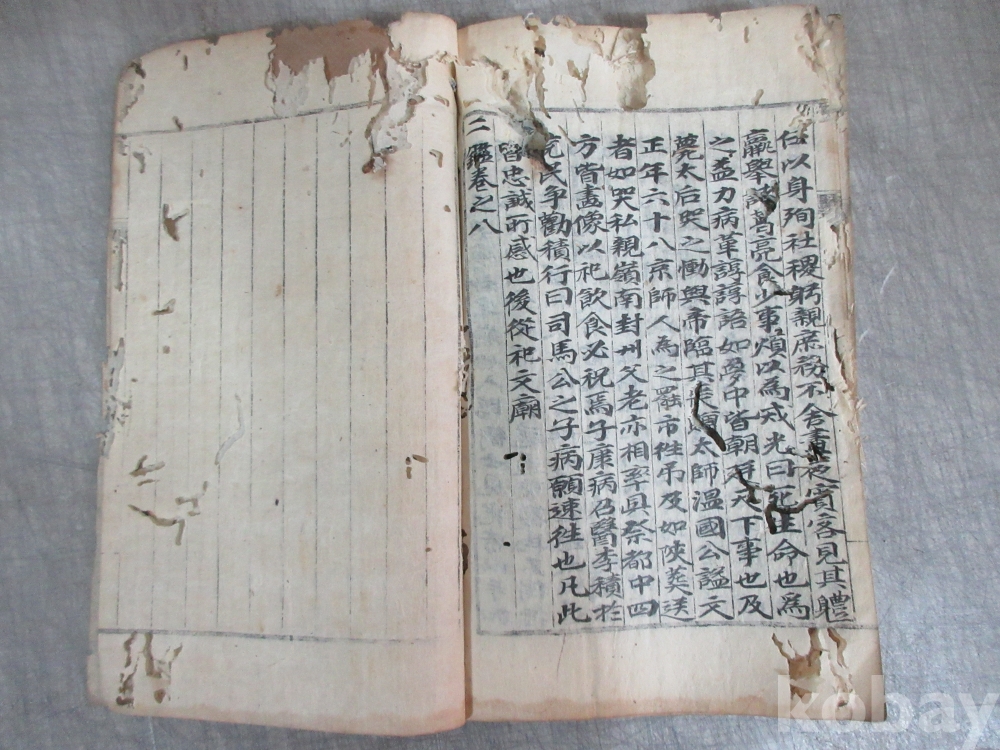 任以身殉社稷躬親庶務不舍晝夜賓客見其軆
羸舉諸葛亮食少事煩以為戒光曰死生命也為
之益力病革諄諄語如夢中皆朝廷天下事也及
薨太后哭之慟與帝臨其喪贈太師溫國公謚文
正年六十八京師人為之罷市往吊及如陝葬送
者如哭私親嶺南封州父老亦相率具祭都中四
方皆畫像以祀飲食必祝焉子康病乃醫李積於
兗民爭勸積行曰司馬公之子病願速徃也凡此
皆忠誠所感也後從祀文廟
二鑑卷之八
kobay